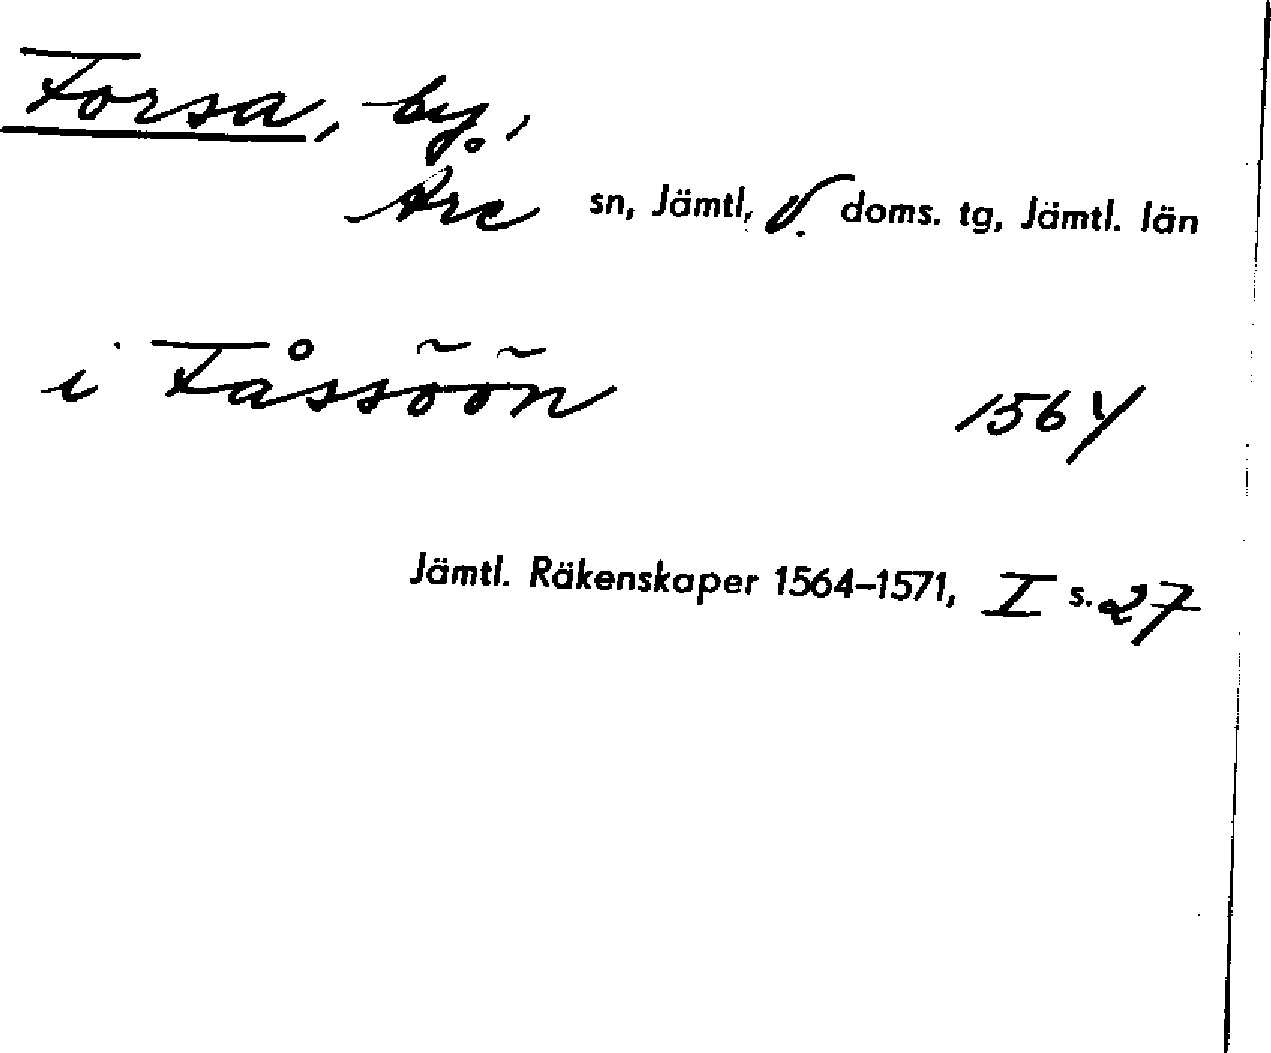 Forsa, by,
Åre sn, Jämtl, V. doms. tg, Jämtl. län
i Fåssõõn 1564
Jämtl. Räkenskaper 1564–1571, I s. 27